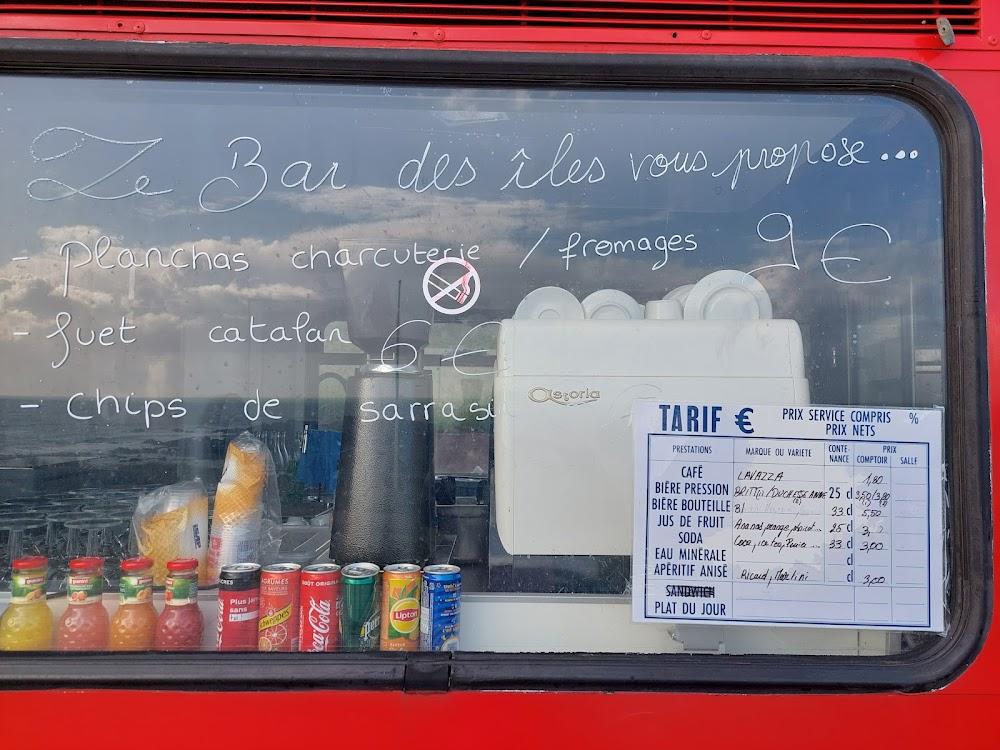 Ze Bar des îles vous propose...
- planchas charcuterie / fromages 9€
- fuet catalan 6€
- chips de sarrasi
Astoria
TARIF € PRIX SERVICE COMPRIS %
PRIX NETS
PRESTATIONS MARQUE OU VARIETE CONTE- NANCE PRIX COMPTOIR SALLE
CAFÉ LAVAZZA 1,80
BIÈRE PRESSION 25 cl 3,50/3,80
BIÈRE BOUTEILLE 33 cl 5,50
JUS DE FRUIT Ananas, orange, abricot... 25 cl
SODA Coca, ice tea, 33 cl 3,00
EAU MINÉRALE cl
APÉRITIF ANISÉ Ricard, Martini cl 3,00
SANDWICH
PLAT DU JOUR
granini
Plus
sans
AGRUMES
Schweppes
GOÛT ORIGINAL
Coca-Cola
Perrier
Lipton